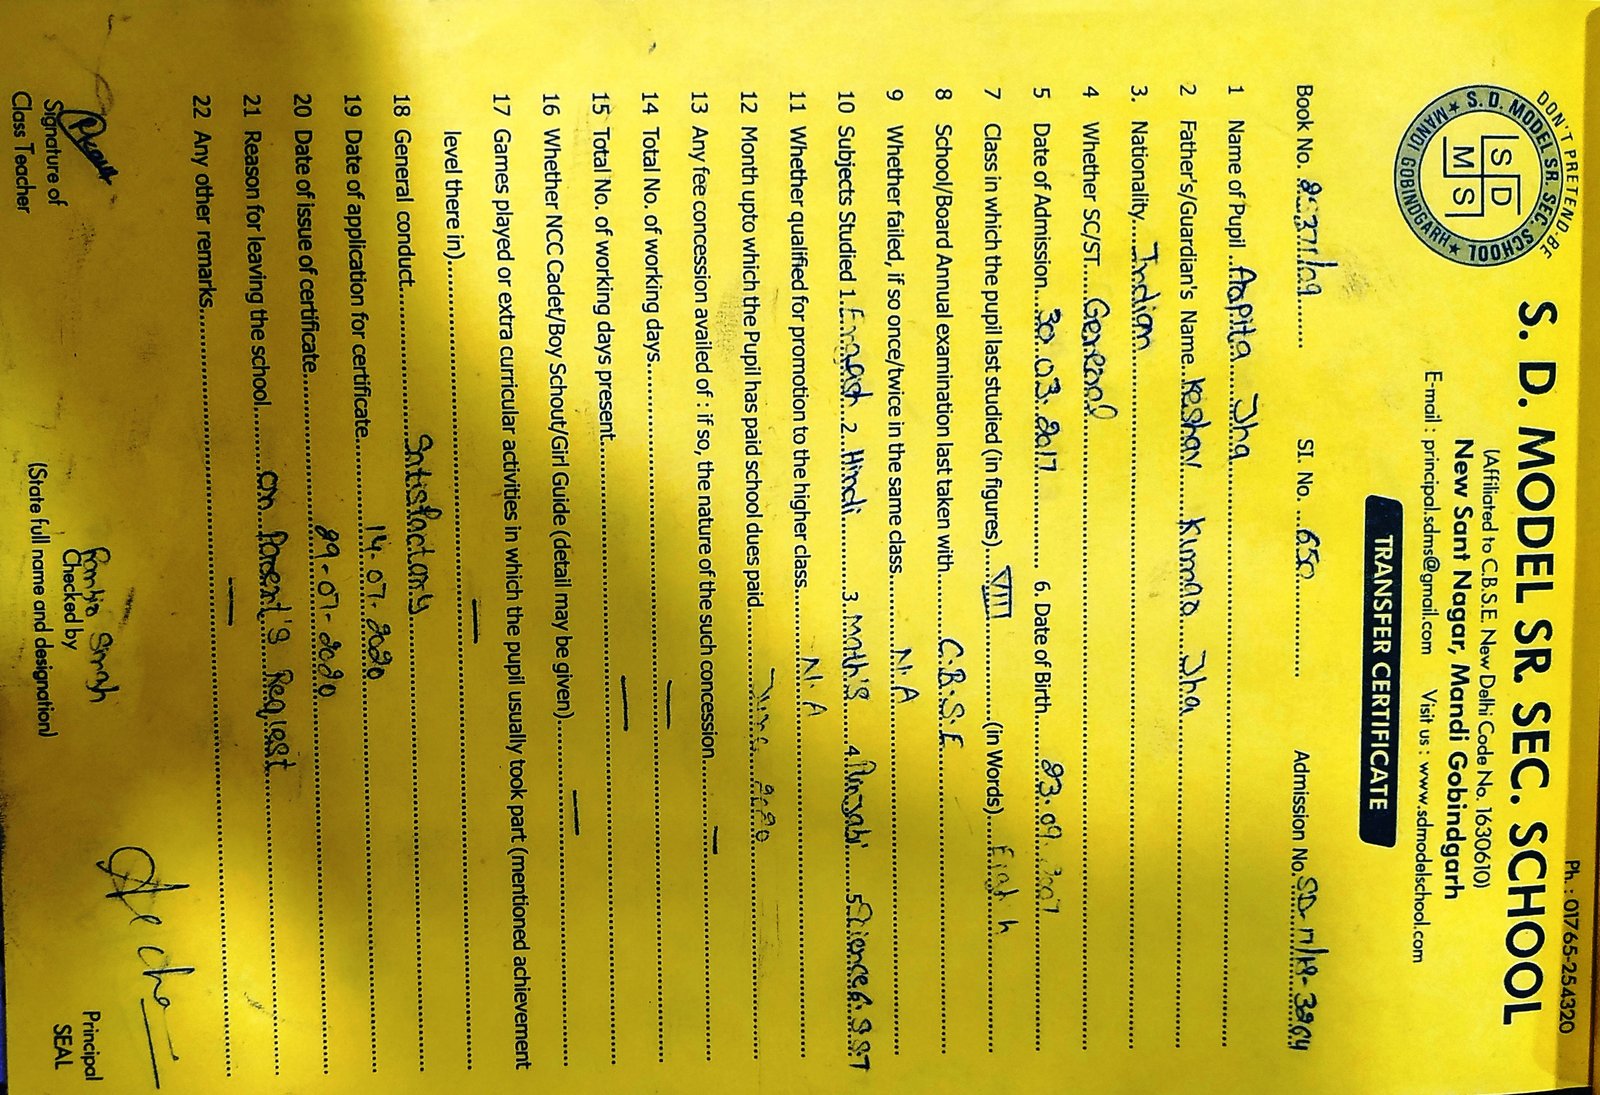 Ph : 01765-254320
DON'T PRETEND-BE
S. D. MODEL SR. SEC. SCHOOL
★ MANDI GOBINDGARH ★
S D
M S
S. D. MODEL SR. SEC. SCHOOL
(Affiliated to C.B.S.E. New Delhi Code No. 1630610)
New Sant Nagar, Mandi Gobindgarh
E-mail : principal.sdms@gmail.com Visit us : www.sdmodelschool.com
TRANSFER CERTIFICATE
Book No. SI. No. 650 Admission No.
1 Name of Pupil Aapita Jha
2 Father's/Guardian's Name Keshav Kumar Jha
3. Nationality Indian
4 Whether SC/ST General
5 Date of Admission 30.03.2017 6. Date of Birth 23.09.2007
7 Class in which the pupil last studied (in figures) VIII (in Words) Eighth
8 School/Board Annual examination last taken with C.B.S.E
9 Whether failed, if so once/twice in the same class N.A
10 Subjects Studied 1. English 2. Hindi 3. Math's 4. Punjabi 5. Science 6. S.ST
11 Whether qualified for promotion to the higher class N.A
12 Month upto which the Pupil has paid school dues paid June 2020
13 Any fee concession availed of : if so, the nature of the such concession —
14 Total No. of working days —
15 Total No. of working days present —
16 Whether NCC Cadet/Boy Schout/Girl Guide (detail may be given) —
17 Games played or extra curricular activities in which the pupil usually took part (mentioned achievement
level there in) —
18 General conduct Satisfactory
19 Date of application for certificate 14.07.2020
20 Date of issue of certificate 29.07.2020
21 Reason for leaving the school on Parent's Request
22 Any other remarks —
Signature of
Class Teacher
Singh
Checked by
(State full name and designation)
Principal
SEAL